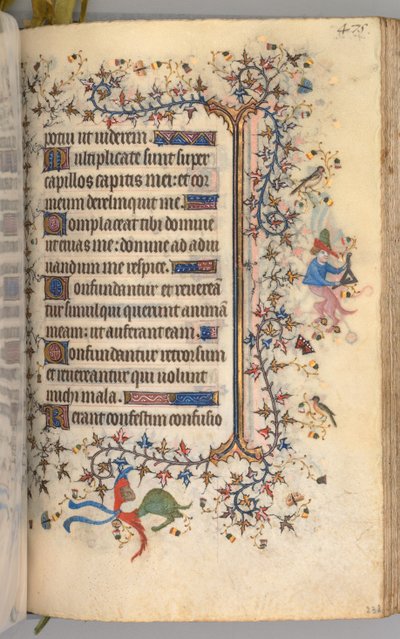 475
potui ut viderem.
Multiplicate sunt super
capillos capitis mei: et cor
meum dereliquit me.
Complaceat tibi domine
ut eruas me: domine ad adiu
uandum me respice.
Confundantur et reuerean
tur simul qui querunt animam
meam: ut auferant eam.
Confundantur retrorsum
et reuereantur qui uolunt
michi mala.
Ferant confestim confusio